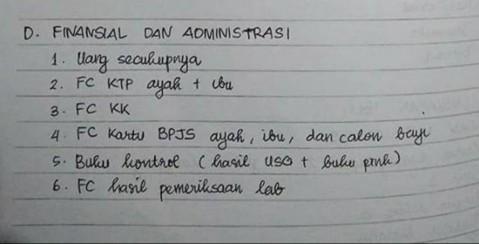 D. FINANSIAL DAN ADMINISTRASI
1. Uang secukupnya
2. FC KTP ayah + ibu
3. FC KK
4. FC Kartu BPJS ayah, ibu, dan calon bayi
5. Buku kontrol (hasil USG + buku pink)
6. FC hasil pemeriksaan lab